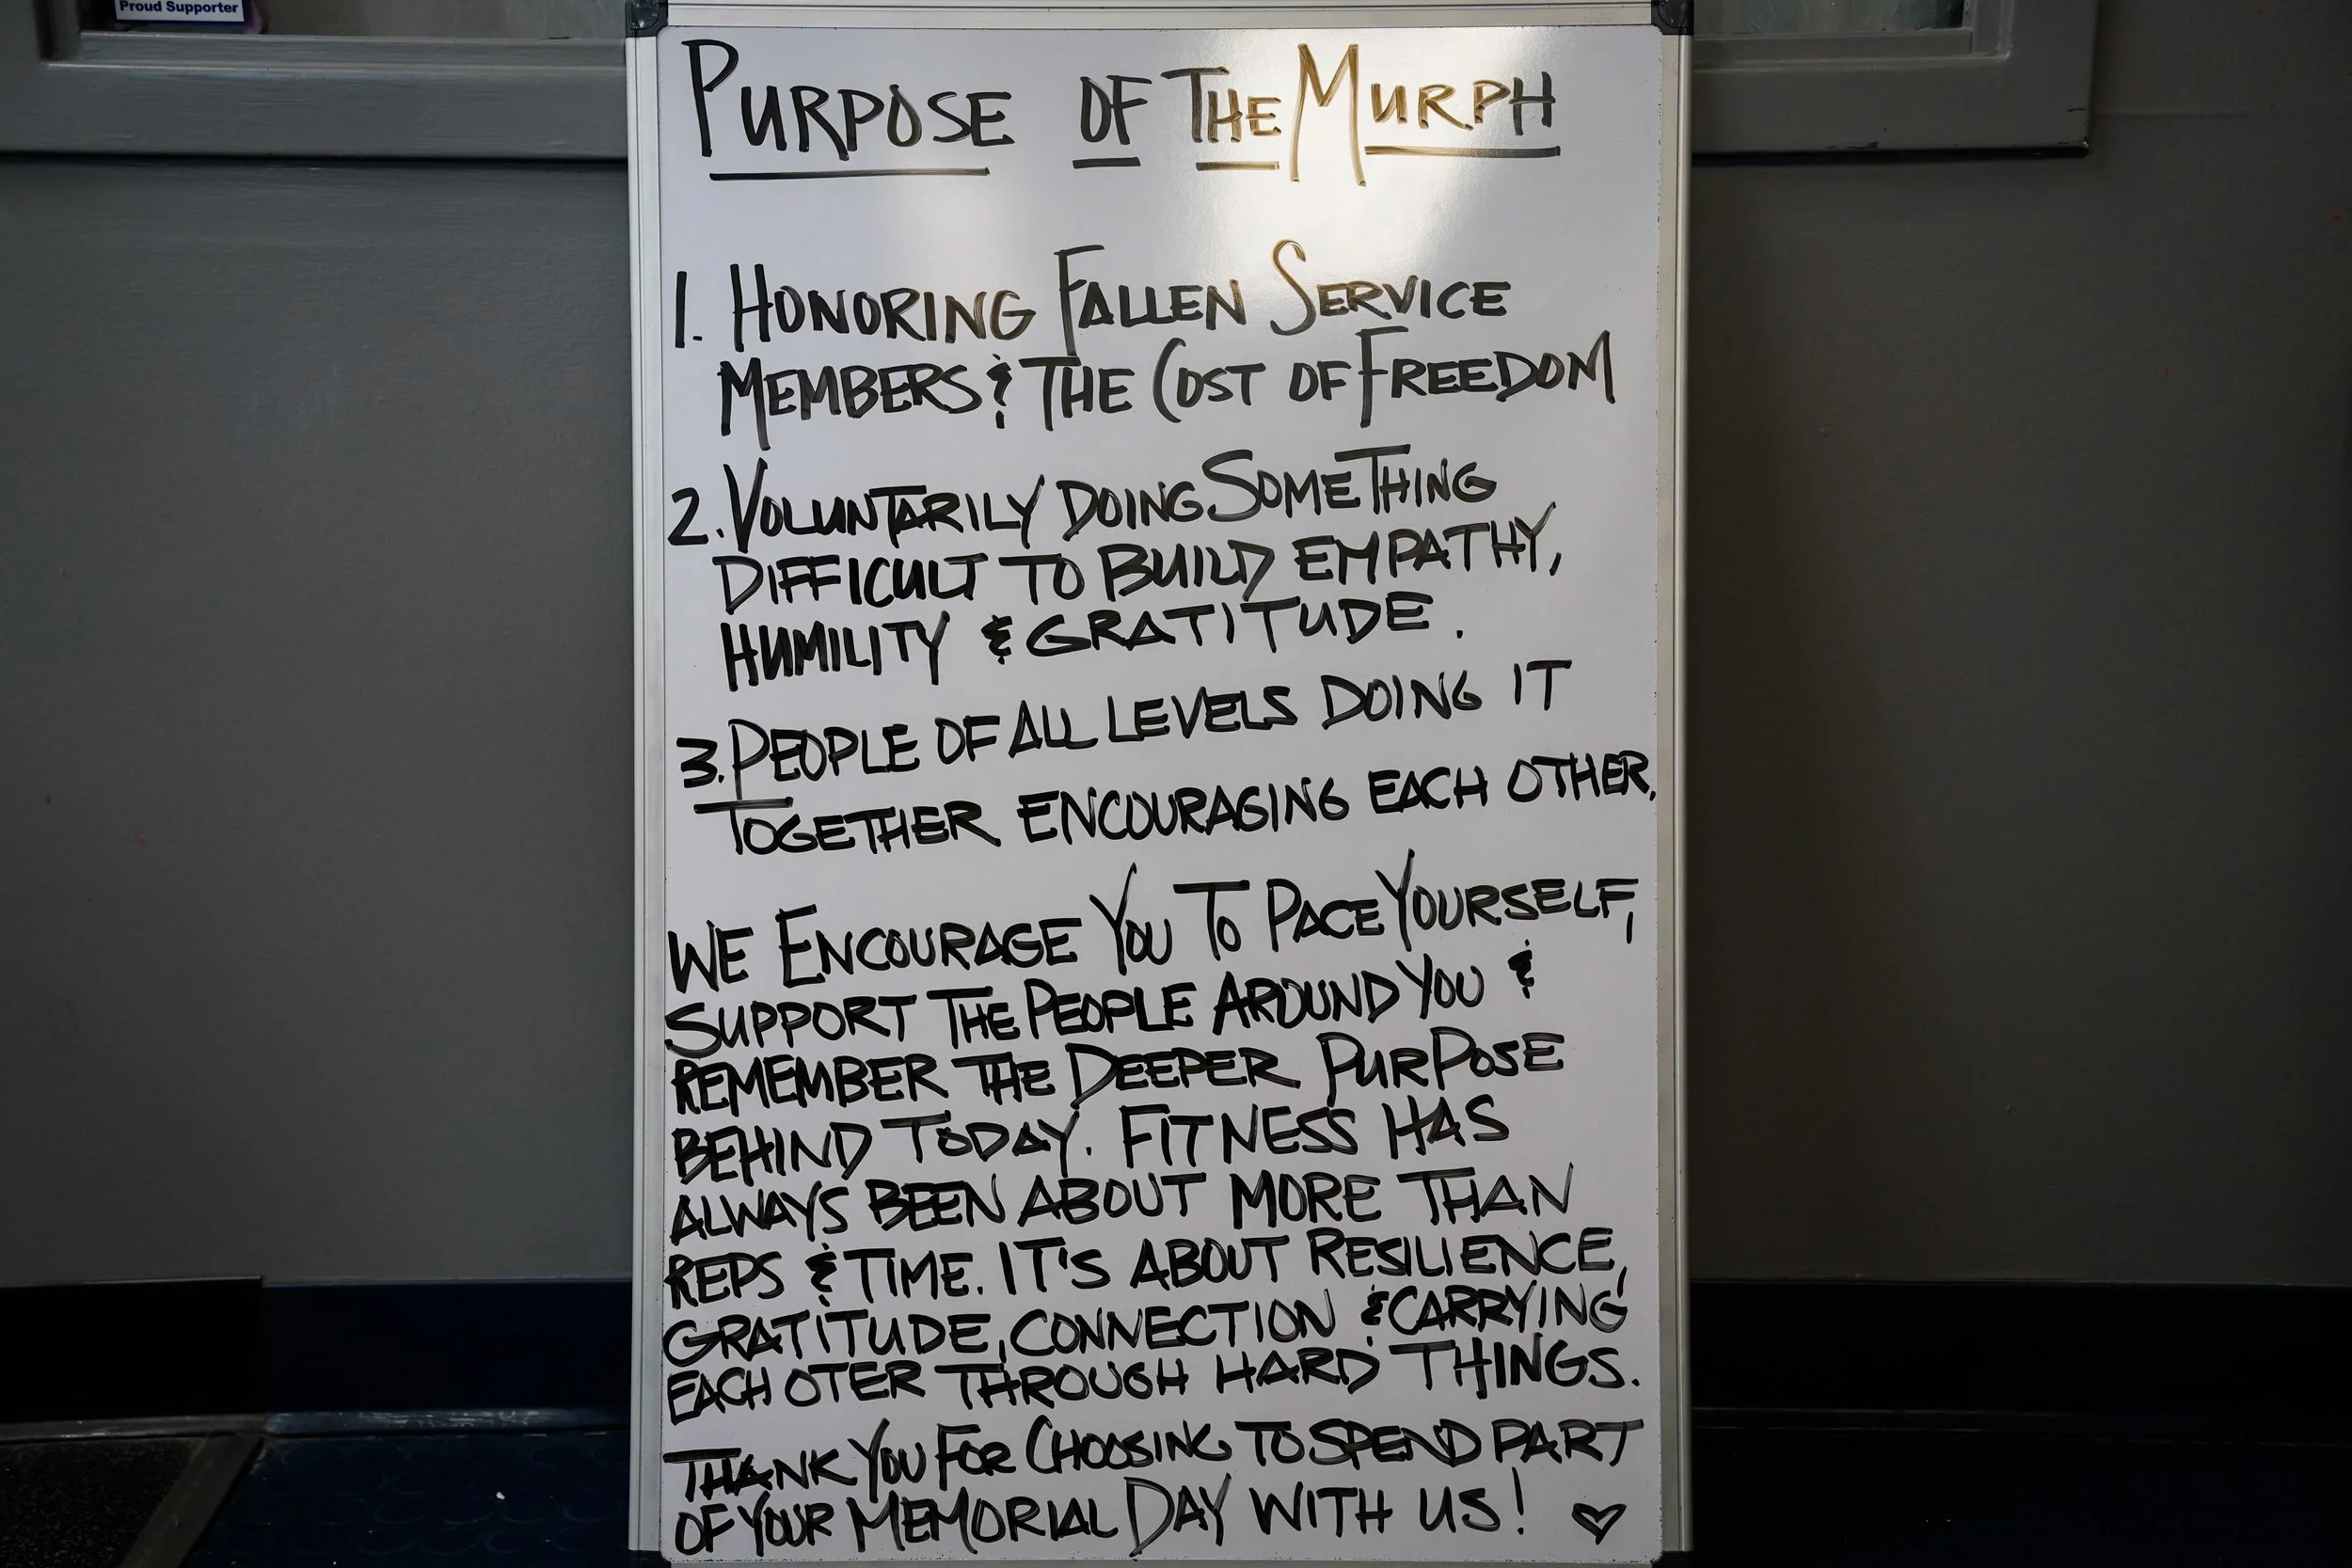 Proud Supporter
PURPOSE OF THE MURPH
1. HONORING FALLEN SERVICE
MEMBERS & THE COST OF FREEDOM
2. VOLUNTARILY DOING SOMETHING
DIFFICULT TO BUILD EMPATHY,
HUMILITY & GRATITUDE.
3. PEOPLE OF ALL LEVELS DOING IT
TOGETHER ENCOURAGING EACH OTHER.
WE ENCOURAGE YOU TO PACE YOURSELF,
SUPPORT THE PEOPLE AROUND YOU &
REMEMBER THE DEEPER PURPOSE
BEHIND TODAY. FITNESS HAS
ALWAYS BEEN ABOUT MORE THAN
REPS & TIME. IT'S ABOUT RESILIENCE,
GRATITUDE, CONNECTION & CARRYING
EACH OTER THROUGH HARD THINGS.
THANK YOU FOR CHOOSING TO SPEND PART
OF YOUR MEMORIAL DAY WITH US! ♡